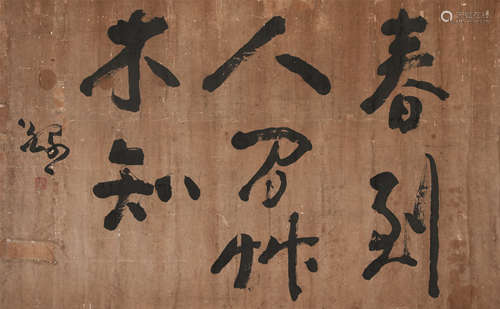 春到
人间艸
木知